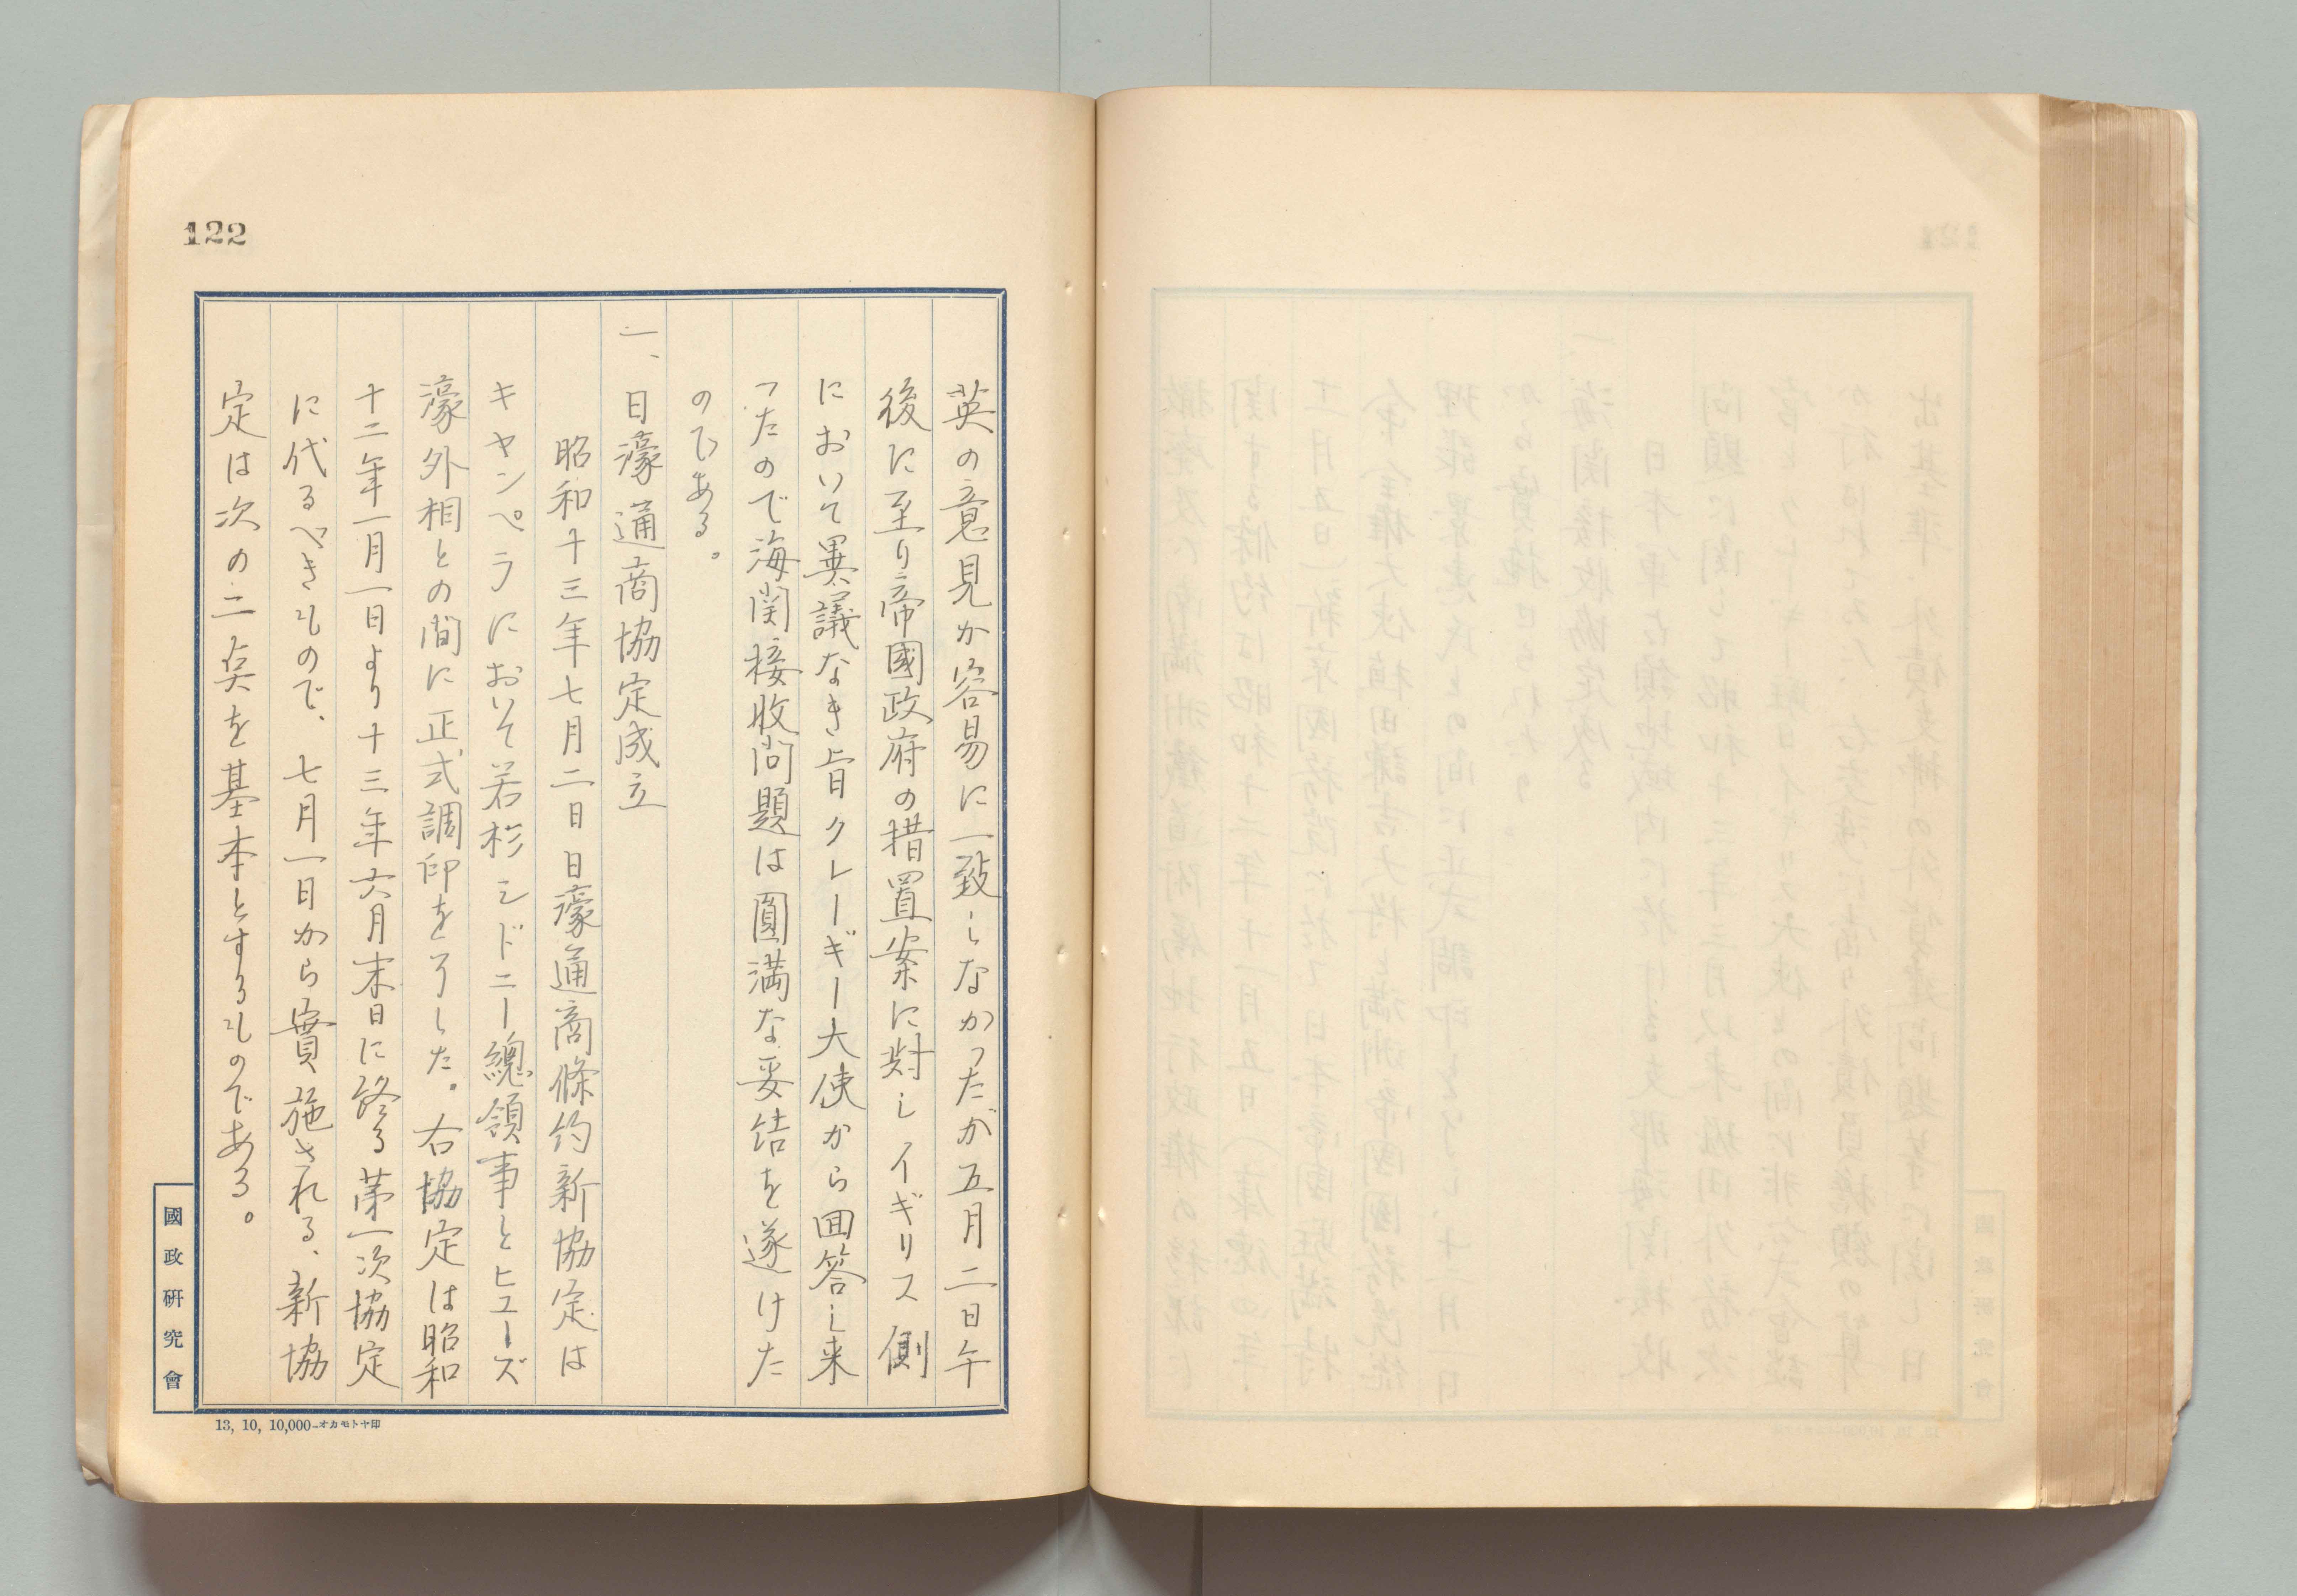 122
英の意見か容易に一致しなかったが五月二日午
後に至り帝國政府の措置案に対しイギリス側
において異議なき旨クレーギー大使から囬答し来
ったので海関接收尚題は圓満な妥结を遂けた
のである。
一、日濠通商協定成立
昭和十三年七月二日日濠通商條约新協定は
キャンペラにおいて若杉シドニー總領事とヒューズ
濠外相との間に正式調印を了した。右協定は昭和
十二年一月一日より十三年六月末日に終る第一次協定
に代るべきもので、七月一日から實施される、新協
定は次の二奌を基本とするものである。
國政研究會
13, 10, 10,000―オカモトヤ印